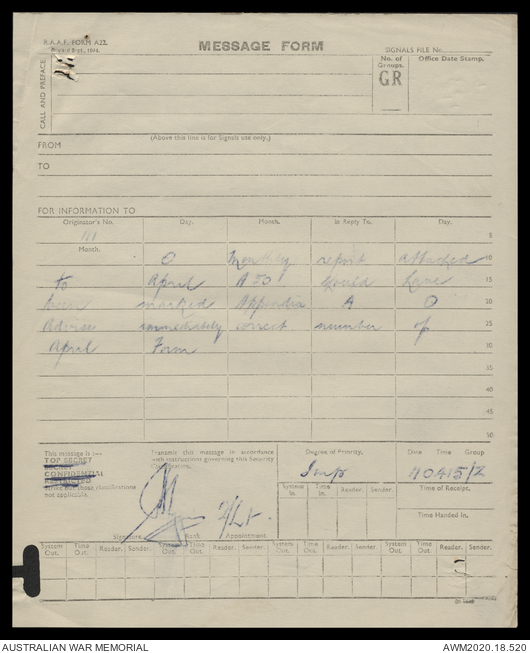 R.A.A.F. FORM A22.
MESSAGE FORM
SIGNALS FILE No.
CALL AND PREFACE
No. of Groups.
GR
Office Date Stamp.
(Above this line is for Signals use only.)
FROM
TO
FOR INFORMATION TO
Originator's No. Day. Month. In Reply To. Day. 5
Month. O Monthly report attached 10
to April A50 should have 15
been marked Appendix A D 20
Advise immediately correct number of 25
April Form 30
35
40
45
50
This message is :— Transmit this message in accordance Degree of Priority. Date Time Group
TOP SECRET with instructions governing this Security
Classification. Imp 40415/Z
CONFIDENTIAL
those classifications
not applicable.
System In. Time In. Reader. Sender. Time of Receipt.
Time Handed In.
F/Lt.
Signature Rank Appointment.
System Out. Time Out. Reader. Sender. System Out. Time Out. Reader. Sender. System Out. Time Out. Reader. Sender. System Out. Time Out. Reader. Sender.
AUSTRALIAN WAR MEMORIAL AWM2020.18.520